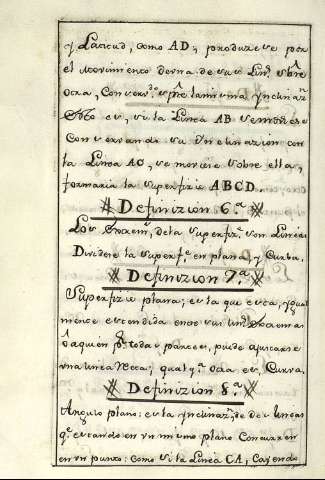 y Latitud, como AD; produzese por
el Movimiento de una de sus Lin.s sobre
otra, Conserv.do spre. la misma Ynclinaz.n
Esto es, si la Linea AB se moviese
Conservando su Ynclinazion con
la Linea AC, se moviese sobre ella,
formaria la superfizie ABCD.
Definizion 6.a
Los Extrem.s de la superfiz.e son Lineas
Dividese la superf.e en plana y Curba.
Definizion 7.a
Superfizie plana; es la que esta Ygual
mente estendida entre sus Extremos
o aquien p.r todas partes, puede ajustarse
una linea Recta; qualq.a otra es, Curva.
Definizion 8.a
Angulo plano: es la Ynclinaz.n de dos lineas
q.e estando en un mismo plano Concurren
en un punto: como si la Linea CA, Cayendo